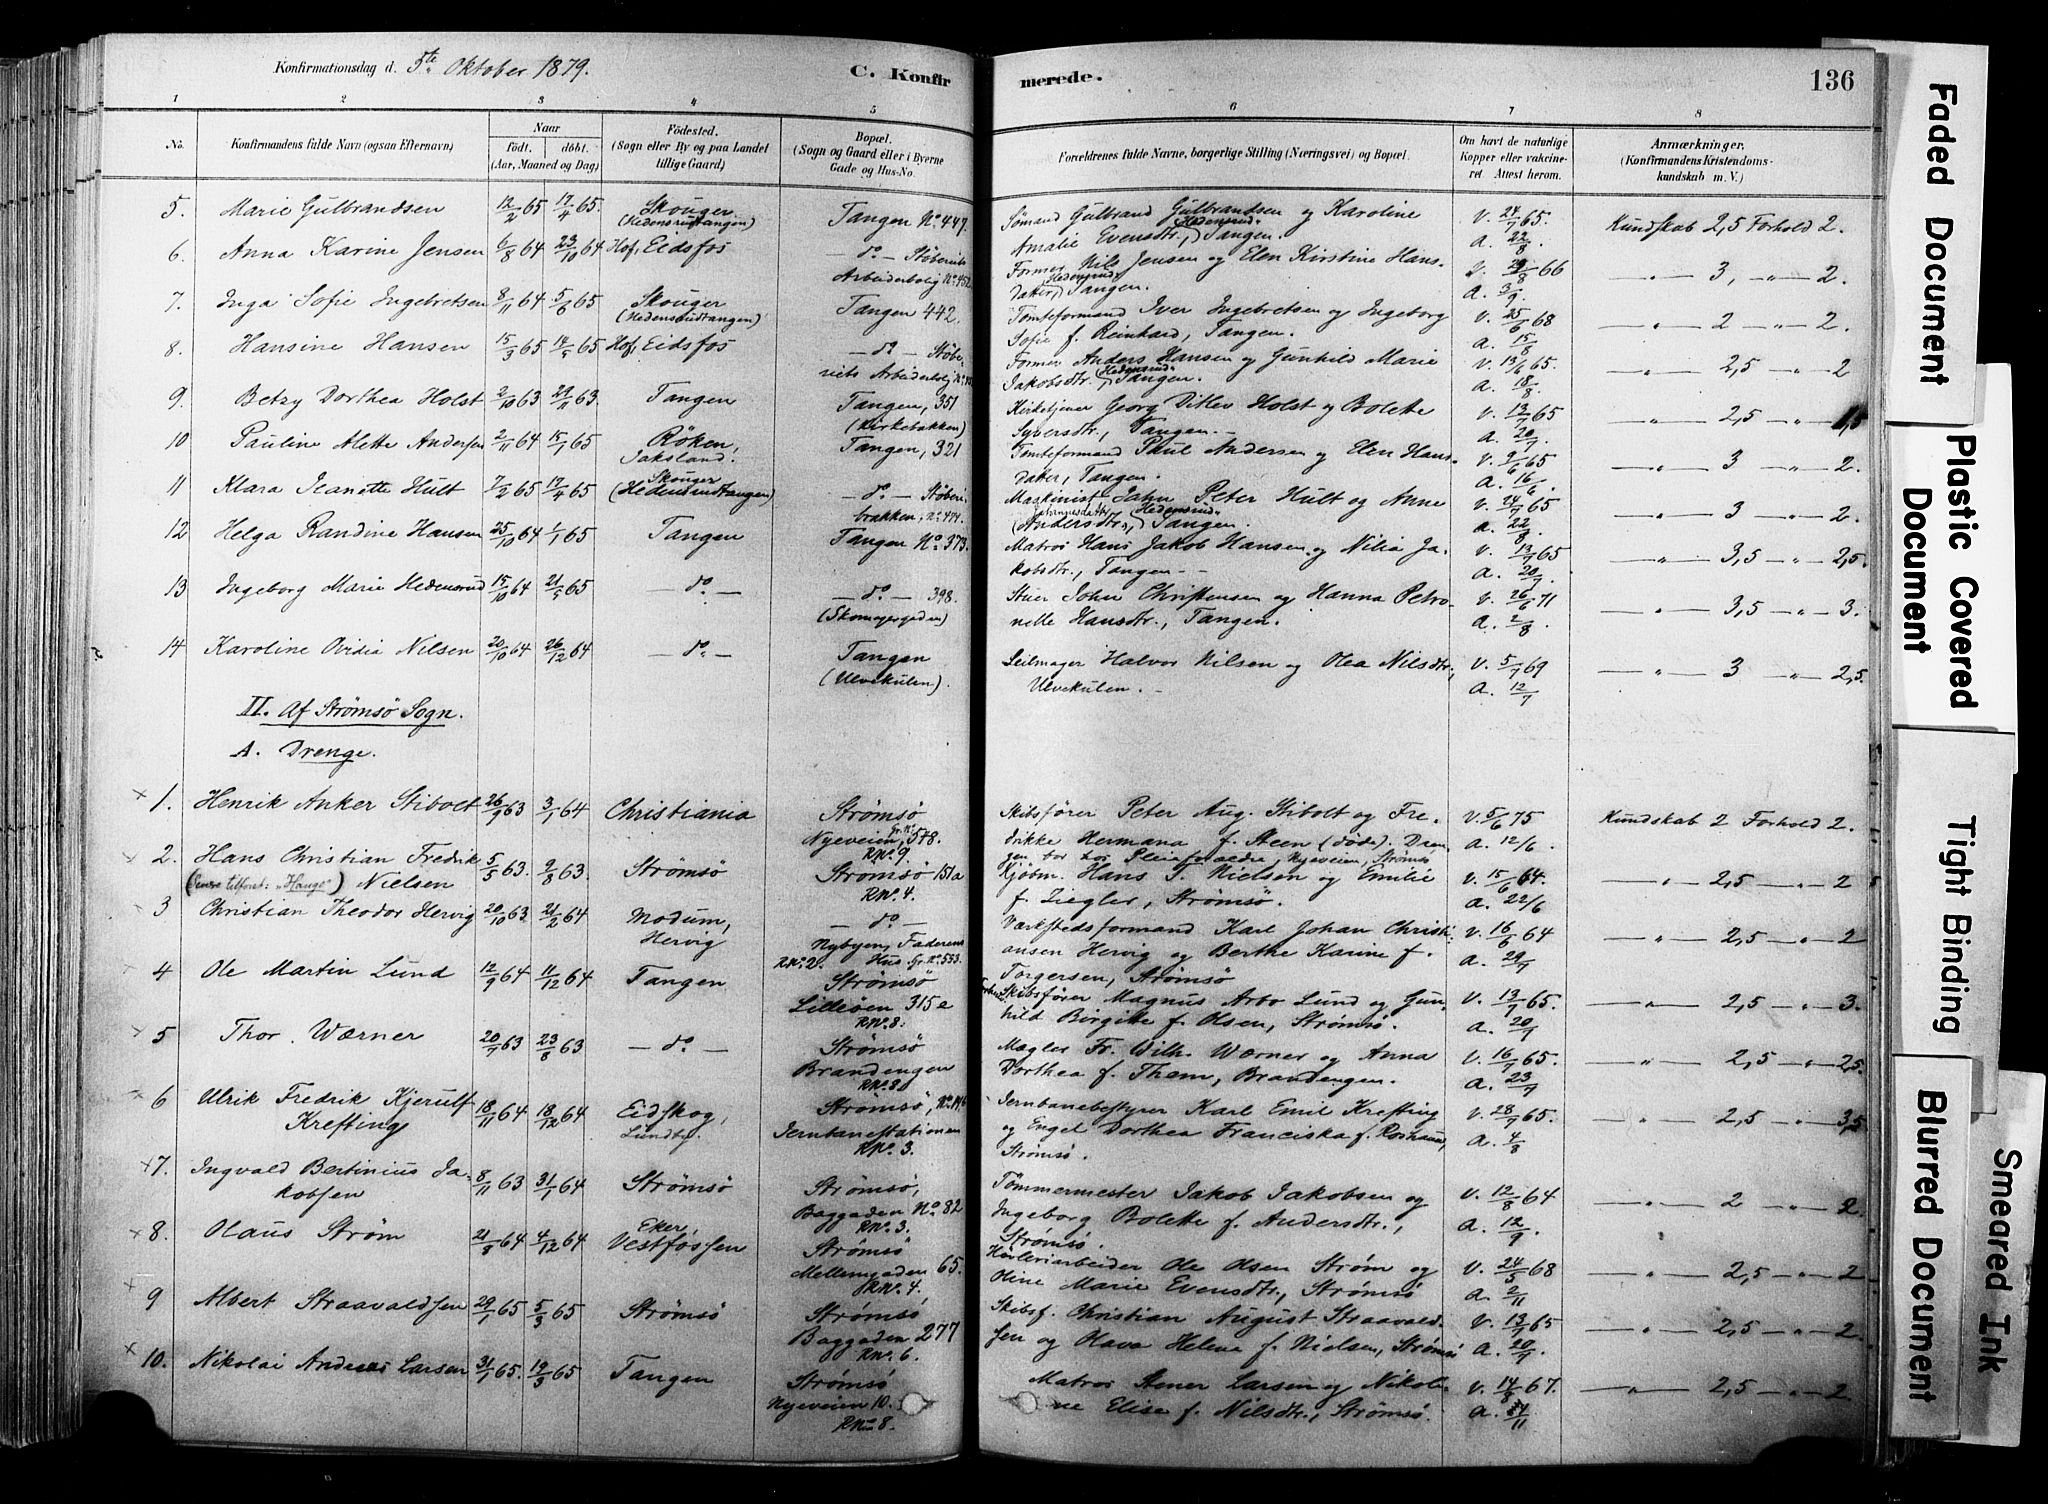 Konfirmationsdag d. 5te Oktober 1879.
C. Konfirmerede.
136
1 2 3 4 5 6 7 8
No.
Konfirmandens fulde Navn (ogsaa Efternavn)
Naar
Født. døbt.
(Aar, Maaned og Dag)
Fødested.
(Sogn eller By og paa Landet
tillige Gaard)
Bopæl.
(Sogn og Gaard eller i Byerne
Gade og Hus-No.
Forældrenes fulde Navne, borgerlige Stilling (Næringsvei) og Bopæl.
Om havt de naturlige
Kopper eller vakcine-
ret. Attest herom.
Anmærkninger,
(Konfirmandens Kristendoms-
kundskab m. V.)
5. Marie Gulbrandsen 12/2 65 17/4 65. Skouger (Hedensrudtangen) Tangen No 447. Sømand Gulbrand Gulbrandsen og Karoline V. 24/7 65. Kundskab 2,5 Forhold 2.
Amalie Evensdtr., Hedensrud Tangen. a. 22/8
6. Anna Karine Jensen 6/8 64 23/10 64 Hof, Eidsfos — do — Støberiets Former Nils Jensen og Elen Kirstine Hans- V. 29/8 66 — " — 3, " — 2.
Arbeiderbolig No 452. datter, Hedensrud Tangen. a. 3/9.
7. Inga Sofie Ingebretsen 8/11 64 5/6 65 Skouger (Hedensrudtangen) Tangen 442. Tomteformand Iver Ingebretsen og Ingeborg V. 25/6 68 — " — 2 — " — 2.
Sofie f. Reinhard, Tangen. a. 15/8
8. Hansine Hansen 15/3 65 14/5 65 Hof, Eidsfos — do — Støbe- Former Anders Hansen og Gunhild Marie V. 13/6 65. — " — 2,5 — " — 2
riets Arbeiderbolig Jakobsdtr., Hedensrud Tangen. a. 18/8.
9. Betzy Dorthea Holst 2/10 63 29/11 63. Tangen Tangen, 351 Kirketjener Georg Ditlev Holst og Bolette V. 13/7 65 — " — 2,5 — " — 1,5
(Kirkebakken) Syversdtr., Tangen. — a. 20/7.
10 Pauline Alette Andersen 2/11 64 15/1 65 Røken, Jaksland. Tangen, 321 Tomteformand Paul Andersen og Elen Hans- V. 9/6 65 — " — 3 — " — 2.
datter, Tangen. a. 16/6.
11 Klara Jeanette Hult 7/2 65 17/4 65 Skouger (Hedensrudtangen) — do — Støberi- Maskinist John Peter Hult og Anne V. 24/7 65 — " — 3 — " — 2.
bakken, No 474. (Andersdtr.,) Hedensrud Tangen. a. 22/8
12 Helga Randine Hansen 25/10 64 1/1 65 Tangen Tangen No 373. Matros Hans Jakob Hansen og Nilia Ja- V. 13/7 65 — " — 3,5 — " — 2,5.
kobsdtr., Tangen — — a. 20/7.
13 Ingeborg Marie Hedensrud 15/10 64 21/5 65 — do — — do — 398. Stuer John Christensen og Hanna Petro- V. 26/6 71 — " — 3,5 — " — 3.
(Skomagergaden) nelle Hansdtr., Tangen. a. 2/8.
14 Karoline Ovidia Nilsen 20/10 64 26/12 64 — do — Tangen Seilmager Halvor Nilsen og Olea Nilsdtr., V. 5/7 69 — " — 3 — " — 2,5.
(Ulvekulen). Ulvekulen. — a. 12/7
II. Af Strømsø Sogn.
A. Drenge.
1. Henrik Anker Stibolt 26/9 63 3/1 64 Christiania Strømsø Skibsfører Peter Aug. Stibolt og Fre- V. 5/6 75 Kundskab 2 Forhold 2.
Nyeveien, Gr. No 578. RNo. 9. drikke Hermana f. Steen (døde). Dren- a. 12/6.
gen bor hos Pleieforældre, Nyeveien, Strømsø
2. Hans Christian Fredrik 5/5 63. 9/8 63. Strømsø Strømsø 151a Kjøbm. Hans J. Nielsen og Emilie V. 15/6 64. — " — 2,5 — " — 2
(Senere tilføiet: "Hauge") Nielsen RNo. 4. f. Ziegler, Strømsø. a. 22/6
3 Christian Theodor Hervig 20/10 63. 21/2 64 Modum, Hervig — do — Værkstedsformand Karl Johan Christi- V. 16/6 64 — " — 2,5 — " — 2
Nybyen, Faderens RNo. 2. Hus Gr. No 553. ansen Hervig og Berthe Karine f. a. 29/7
Torgersen, Strømsø
4 Ole Martin Lund 12/9 64 11/12 64 Tangen Strømsø Skibsfører Magnus Arbo Lund og Gun- V. 13/7 65. — " — 2,5 — " — 3.
Lilleøen 315e RNo. 8. hild Birgitte f. Olsen, Strømsø. a. 20/7
5 Thor Wærner 20/7 63 23/8 63 — do — Strømsø Mægler Fr. Wilh. Wærner og Anna V. 16/7 65. — " — 2,5 — " — 2,5.
Brandengen RNo. 8. Dorthea f. Tham, Brandengen. a. 23/7
6 Ulrik Fredrik Kjerulf 18/11 64 18/12 64 Eidskog, Lundby. Strømsø, Jernbanebestyrer Karl Emil Krefting V. 28/7 65. — " — 2,5 — " — 3,5
Krefting Jernbanestationen RNo. 3. og Engel Dorthea Franciska f. a. 4/8
Strømsø.
7. Ingvald Bertinius Ja- 8/11 63 31/1 64 Strømsø Strømsø, Tømmermester Jakob Jakobsen og V. 12/8 64 — " — 2 — " — 2.
kobsen Baggaden No 82 RNo. 3. Ingeborg Bolette f. Andersdtr., a. 12/9.
Strømsø.
8. Olaus Strøm 21/8 64 4/12 64 Eker, Vestfossen Strømsø Høvleriarbeider Ole Olsen Strøm og V. 24/5 68 — " — 2,5 — " — 2
Mellemgaden 65. RNo. 4. Oline Marie Evensdtr., Strømsø a. 2/11
9 Albert Straavaldsen 29/1 65 5/3 65 Strømsø Strømsø Skibsf. Christian August Straavald- V. 13/7 65 — " — 2,5 — " — 2
Baggaden 277 RNo. 6. sen og Olava Helene f. Nielsen, Strømsø a. 20/7.
10. Nikolai Andreas Larsen 31/1 65. 19/3 65 Tangen Strømsø Matros Stener Larsen og Nikoli- V. 14/8 67. — " — 2,5 — " — 2
Nyeveien 10. RNo. 8. ne Elise f. Nilsdtr., Strømsø. a.
Faded Document
Plastic Covered Document
Tight Binding
Blurred Document
Smeared Ink